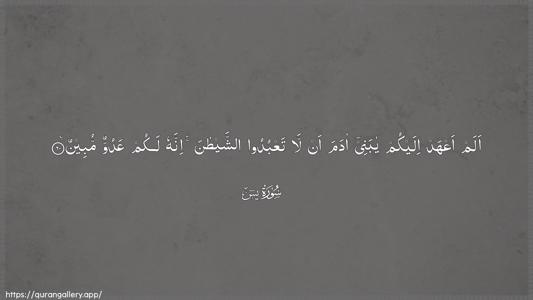 اَلَمْ اَعْهَدْ اِلَيْكُمْ يٰبَنِىْٓ اٰدَمَ اَنْ لَّا تَعْبُدُوا الشَّيْطٰنَ ۚ اِنَّهٗ لَـكُمْ عَدُوٌّ مُّبِيْنٌ ۙ‏
سُوْرَةُ يٰسٓ
https://qurangallery.app/